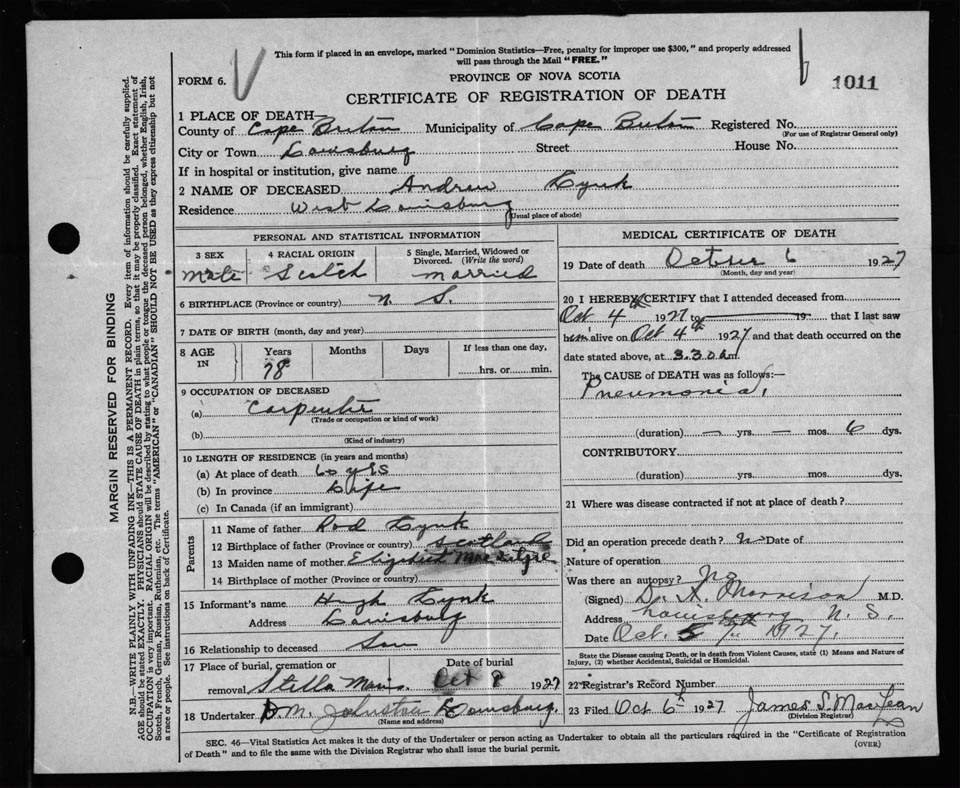 This form if placed in an envelope, marked "Dominion Statistics—Free, penalty for improper use $300," and properly addressed
will pass through the Mail "FREE."
FORM 6.
PROVINCE OF NOVA SCOTIA
1011
CERTIFICATE OF REGISTRATION OF DEATH
1 PLACE OF DEATH—
County of Cape Breton Municipality of Cape Breton Registered No.
(For use of Registrar General only)
City or Town Louisburg Street House No.
If in hospital or institution, give name
2 NAME OF DECEASED Andrew Kynk
Residence West Louisburg
(Usual place of abode)
PERSONAL AND STATISTICAL INFORMATION
3 SEX 4 RACIAL ORIGIN 5 Single, Married, Widowed or Divorced. (Write the word)
Male Scotch married
6 BIRTHPLACE (Province or country) N. S.
7 DATE OF BIRTH (month, day and year)
8 AGE IN Years Months Days If less than one day,
78 hrs. or min.
9 OCCUPATION OF DECEASED
(a) Carpenter
(Trade or occupation or kind of work)
(b)
(Kind of industry)
10 LENGTH OF RESIDENCE (in years and months)
(a) At place of death 60 yrs
(b) In province Life
(c) In Canada (if an immigrant)
Parents
11 Name of father Rod Kynk
12 Birthplace of father (Province or country) Scotland
13 Maiden name of mother Elizabeth Mac
14 Birthplace of mother (Province or country)
15 Informant's name Hugh Kynk
Address Louisburg
16 Relationship to deceased Son
17 Place of burial, cremation or Date of burial
removal Stella Maris. Oct 8 1927
18 Undertaker D M. Johnston Louisburg.
(Name and address)
MEDICAL CERTIFICATE OF DEATH
19 Date of death October 6 1927
(Month, day and year)
20 I HEREBY CERTIFY that I attended deceased from
Oct 4th 1927 to 19 that I last saw
him alive on Oct 4th 1927 and that death occurred on the
date stated above, at 3.30 a.m.
The CAUSE of DEATH was as follows:—
Pneumonia,
(duration) — yrs. — mos. 6 dys.
CONTRIBUTORY
(duration) yrs. mos. dys.
21 Where was disease contracted if not at place of death?
Did an operation precede death? No Date of
Nature of operation
Was there an autopsy? No
(Signed) Dr. A. Morrison M.D.
Address Louisburg N. S.
Date Oct. 7th 1927.
State the Disease causing Death, or in death from Violent Causes, state (1) Means and Nature of
Injury, (2) whether Accidental, Suicidal or Homicidal.
22 Registrar's Record Number
23 Filed Oct 6th 1927 James S. MacLean
(Division Registrar)
SEC. 46—Vital Statistics Act makes it the duty of the Undertaker or person acting as Undertaker to obtain all the particulars required in the "Certificate of Registration
of Death" and to file the same with the Division Registrar who shall issue the burial permit.
(OVER)
MARGIN RESERVED FOR BINDING
N.B.—WRITE PLAINLY WITH UNFADING INK—THIS IS A PERMANENT RECORD. Every item of information should be carefully supplied.
AGE should be stated EXACTLY. PHYSICIANS should STATE CAUSE OF DEATH in plain terms, so that it may be properly classified. Exact statement of
OCCUPATION is very important. RACIAL ORIGIN will be described by stating to what people or tongue the deceased person belonged, whether English, Irish,
Scotch, French, German, Russian, Ruthenian, etc. The terms "AMERICAN" or "CANADIAN" SHOULD NOT BE USED as they express citizenship but not
a race or people. See instructions on back of Certificate.